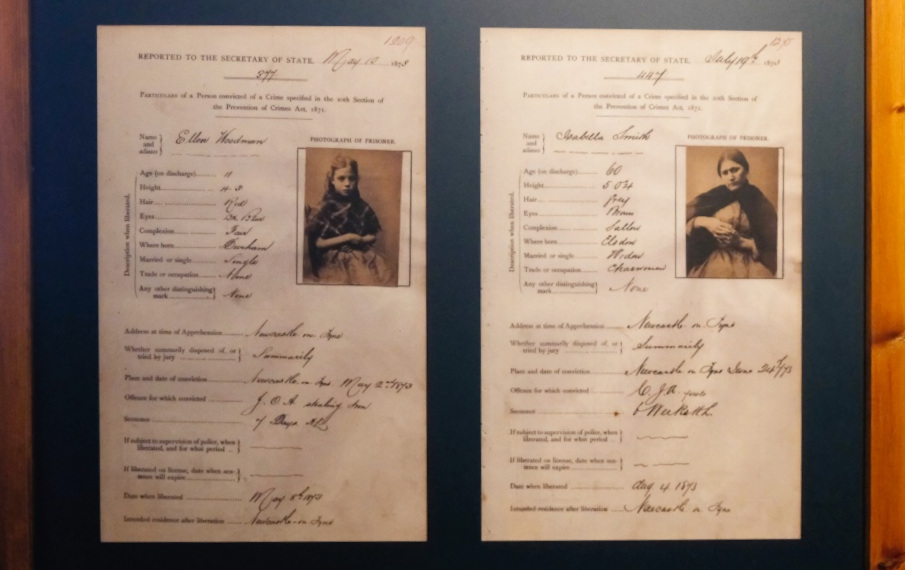 1209
REPORTED TO THE SECRETARY OF STATE, May 12 1873
377
PARTICULARS of a Person convicted of a Crime specified in the 20th Section of
the Prevention of Crimes Act, 1871.
Name
and
aliases
Ellen Woodman
PHOTOGRAPH OF PRISONER.
Description when liberated.
Age (on discharge) 11
Height 4-3
Hair Red
Eyes Blue
Complexion Fair
Where born Durham
Married or single Single
Trade or occupation None
Any other distinguishing
mark None
Address at time of Apprehension Newcastle on Tyne
Whether summarily disposed of, or
tried by jury Summarily
Place and date of conviction Newcastle on Tyne May 2nd 1873
Offence for which convicted J. O. A. stealing iron
Sentence 7 Days
If subject to supervision of police, when
liberated, and for what period
If liberated on license, date when sen-
tence will expire
Date when liberated May 8th 1873
Intended residence after liberation Newcastle on Tyne
REPORTED TO THE SECRETARY OF STATE, July 19th 1873
447
PARTICULARS of a Person convicted of a Crime specified in the 20th Section of
the Prevention of Crimes Act, 1871.
Name
and
aliases
Isabella Smith
PHOTOGRAPH OF PRISONER.
Description when liberated.
Age (on discharge) 60
Height
Hair Grey
Eyes Brown
Complexion Sallow
Where born
Married or single Widow
Trade or occupation Charwoman
Any other distinguishing
mark None
Address at time of Apprehension Newcastle on Tyne
Whether summarily disposed of, or
tried by jury Summarily
Place and date of conviction Newcastle on Tyne June
Offence for which convicted C. J. A.
Sentence 6 Weeks
If subject to supervision of police, when
liberated, and for what period
If liberated on license, date when sen-
tence will expire
Date when liberated Aug 4 1873
Intended residence after liberation Newcastle on Tyne